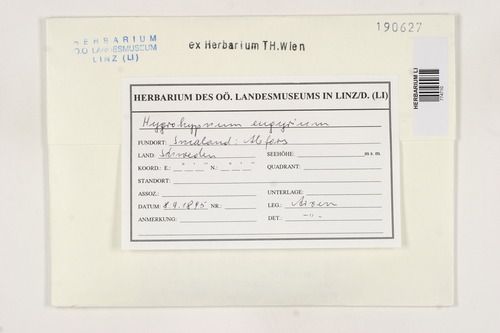 HERBARIUM
OÖ. LANDESMUSEUM
LINZ (LI)
ex Herbarium TH.Wien
190627
HERBARIUM LI
HERBARIUM DES OÖ. LANDESMUSEUMS IN LINZ/D. (LI)
Hygrohypnum eugyrium
FUNDORT: Smaland:
LAND: Schweden SEEHÖHE: m s. m.
KOORD.: E.: ° ' " N.: ° ' " QUADRANT:
STANDORT:
ASSOZ.: UNTERLAGE:
DATUM: 8.9.1895 NR.: LEG.: Arven
ANMERKUNG: DET.: -"-